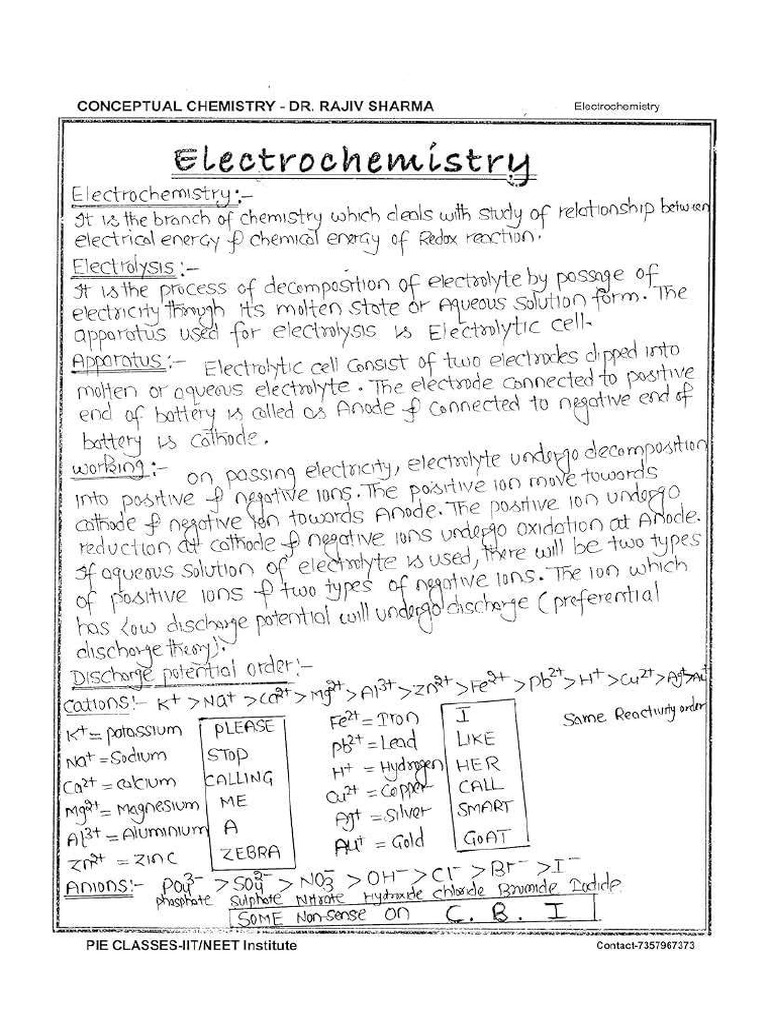 CONCEPTUAL CHEMISTRY - DR. RAJIV SHARMA Electrochemistry
Electrochemistry
Electrochemistry:-
It is the branch of chemistry which deals with study of relationship between
electrical energy & chemical energy of Redox reaction.
Electrolysis:-
It is the process of decomposition of electrolyte by passage of
electricity through its molten state or Aqueous solution form. The
apparatus used for electrolysis is Electrolytic cell.
Apparatus:- Electrolytic cell consist of two electrodes dipped into
molten or aqueous electrolyte. The electrode connected to positive
end of battery is called as Anode & connected to negative end of
battery is cathode.
Working:- on passing electricity, electrolyte undergo decomposition
into positive & negative ions. The positive ion move towards
cathode & negative ion towards Anode. The positive ion undergo
reduction at cathode & negative ions undergo oxidation at Anode.
If aqueous solution of electrolyte is used, there will be two types
of positive ions & two types of negative ions. The ion which
has low discharge potential will undergo discharge (preferential
discharge theory).
Discharge potential order:-
Cations:- K⁺ > Na⁺ > Ca²⁺ > Mg²⁺ > Al³⁺ > Zn²⁺ > Fe²⁺ > Pb²⁺ > H⁺ > Cu²⁺ > Ag⁺ > Au⁺
K⁺ = potassium PLEASE Fe²⁺ = Iron I Same Reactivity order
Na⁺ = Sodium STOP Pb²⁺ = Lead LIKE
Ca²⁺ = calcium CALLING H⁺ = Hydrogen HER
Mg²⁺ = Magnesium ME Cu²⁺ = Copper CALL
Al³⁺ = Aluminium A Ag⁺ = Silver SMART
Zn²⁺ = ZINC ZEBRA Au⁺ = Gold GOAT
Anions:- PO₄³⁻ > SO₄²⁻ > NO₃⁻ > OH⁻ > Cl⁻ > Br⁻ > I⁻
phosphate Sulphate Nitrate Hydroxide chloride Bromide Iodide
SOME Non-sense on C. B. I
PIE CLASSES-IIT/NEET Institute Contact-7357967373